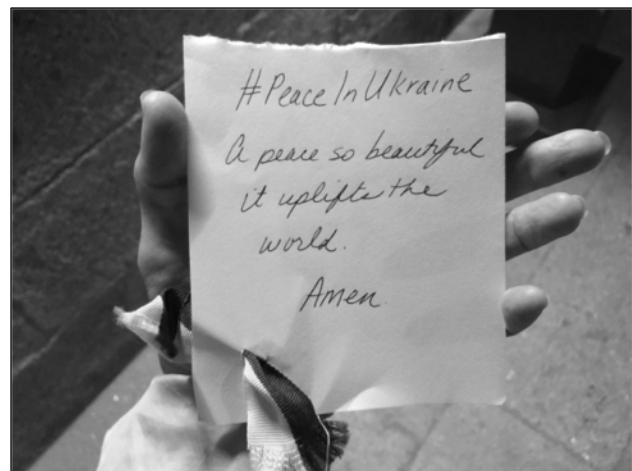 #PeaceInUkraine
A peace so beautiful
it uplifts the
world.
Amen.